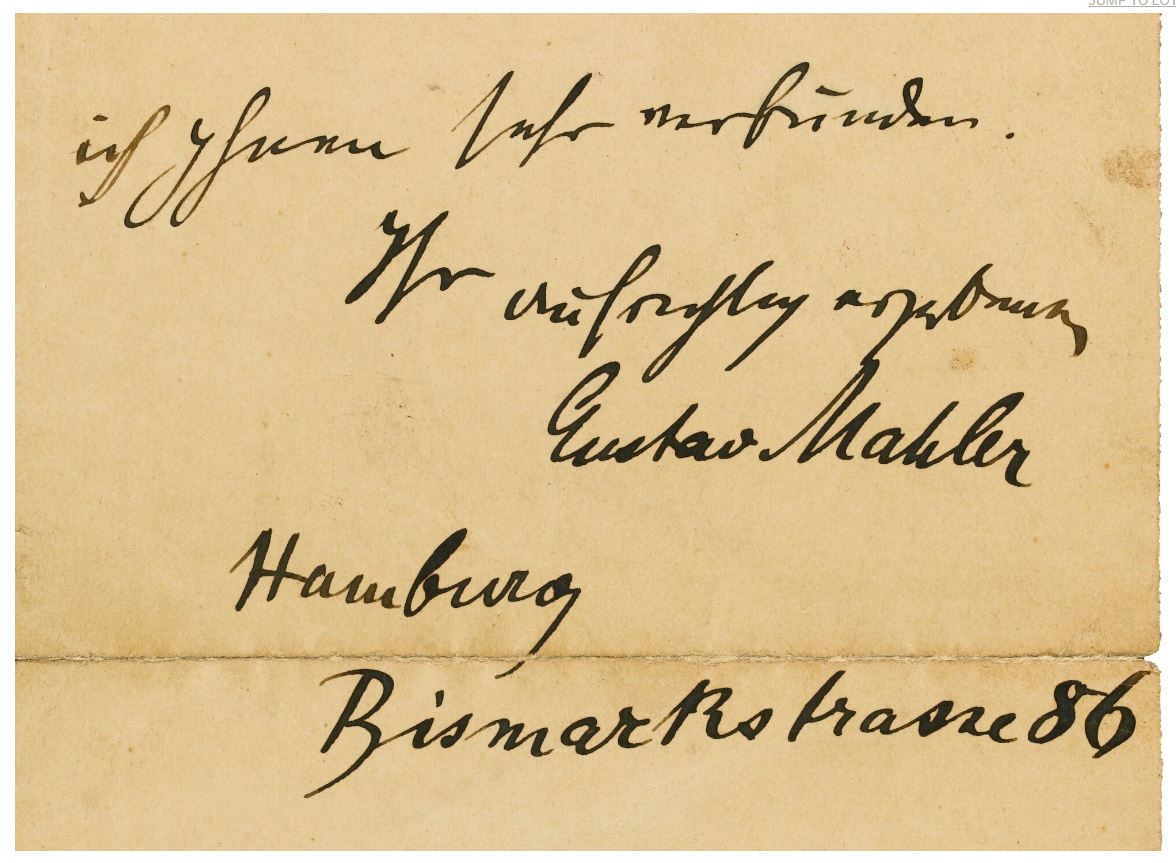 JUMP TO LOT
ich Ihnen sehr verbunden.
Ihr aufrichtig ergebener
Gustav Mahler
Hamburg
Bismarkstrasse 86